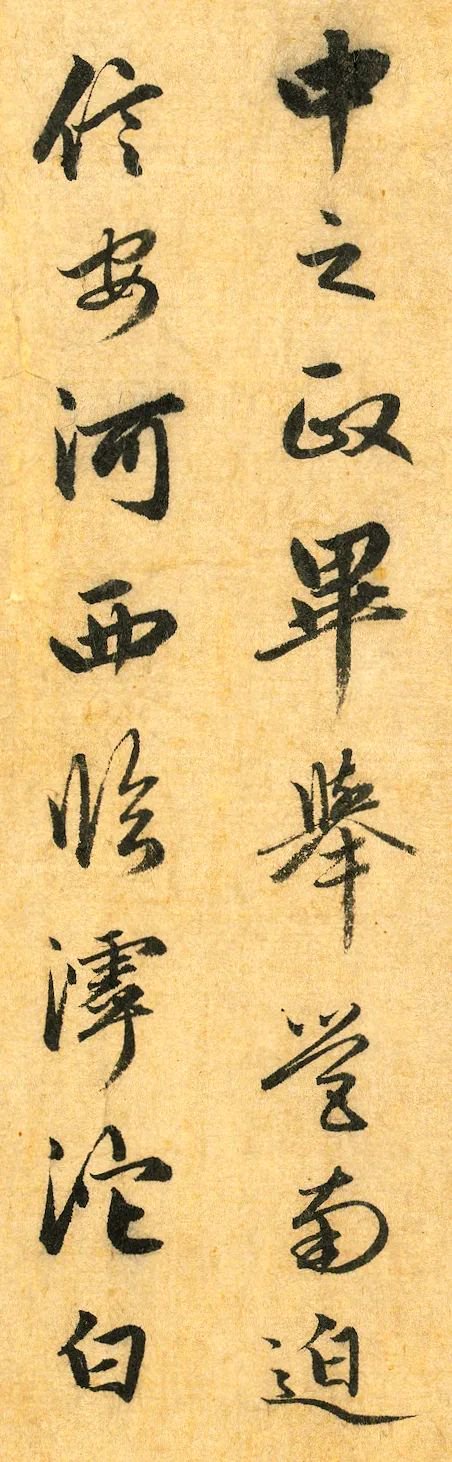 中之政畢舉營南迫
信安河西臨滹沱白